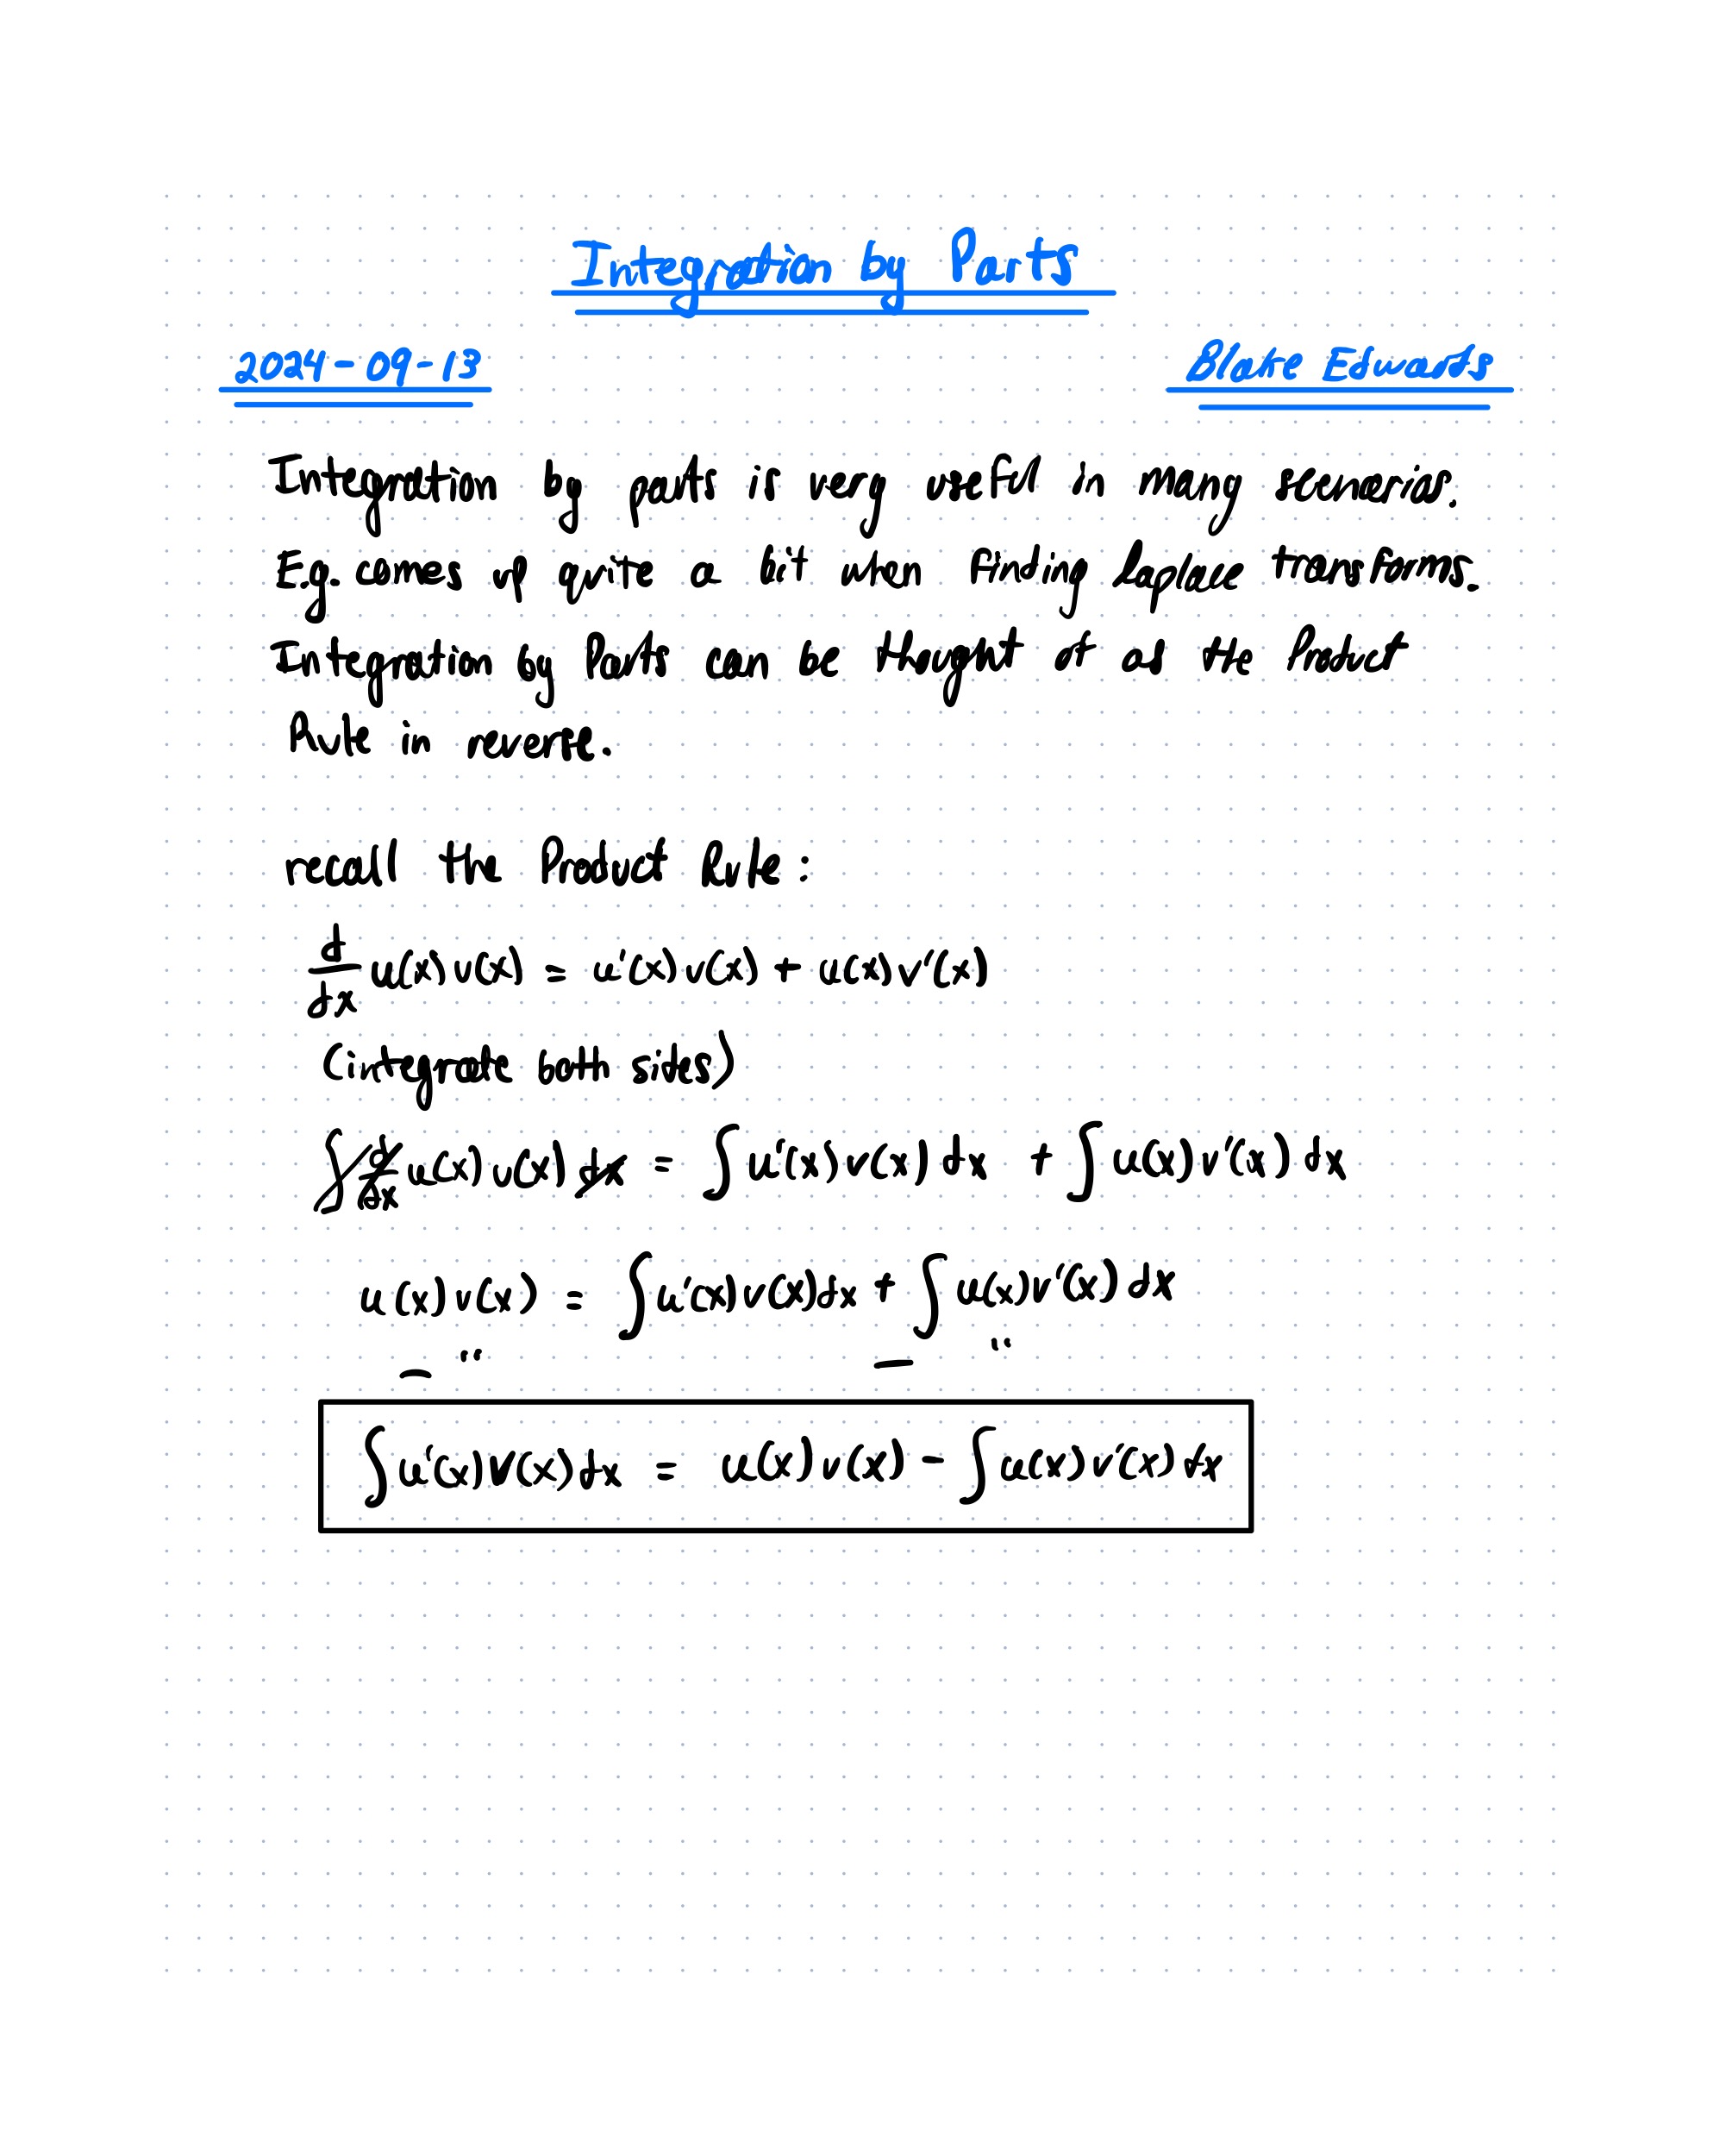 Integration by Parts
2024-09-13 Blake Edwards
Integration by parts is very useful in many scenarios.
E.g. comes up quite a bit when finding Laplace transforms.
Integration by Parts can be thought of as the Product
Rule in reverse.
recall the Product Rule:
d/dx u(x)v(x) = u'(x)v(x) + u(x)v'(x)
(integrate both sides)
∫ d/dx u(x)v(x) dx = ∫u'(x)v(x) dx + ∫u(x)v'(x) dx
u(x)v(x) = ∫u'(x)v(x)dx + ∫u(x)v'(x) dx
− " − "
∫u'(x)v(x)dx = u(x)v(x) − ∫u(x)v'(x)dx